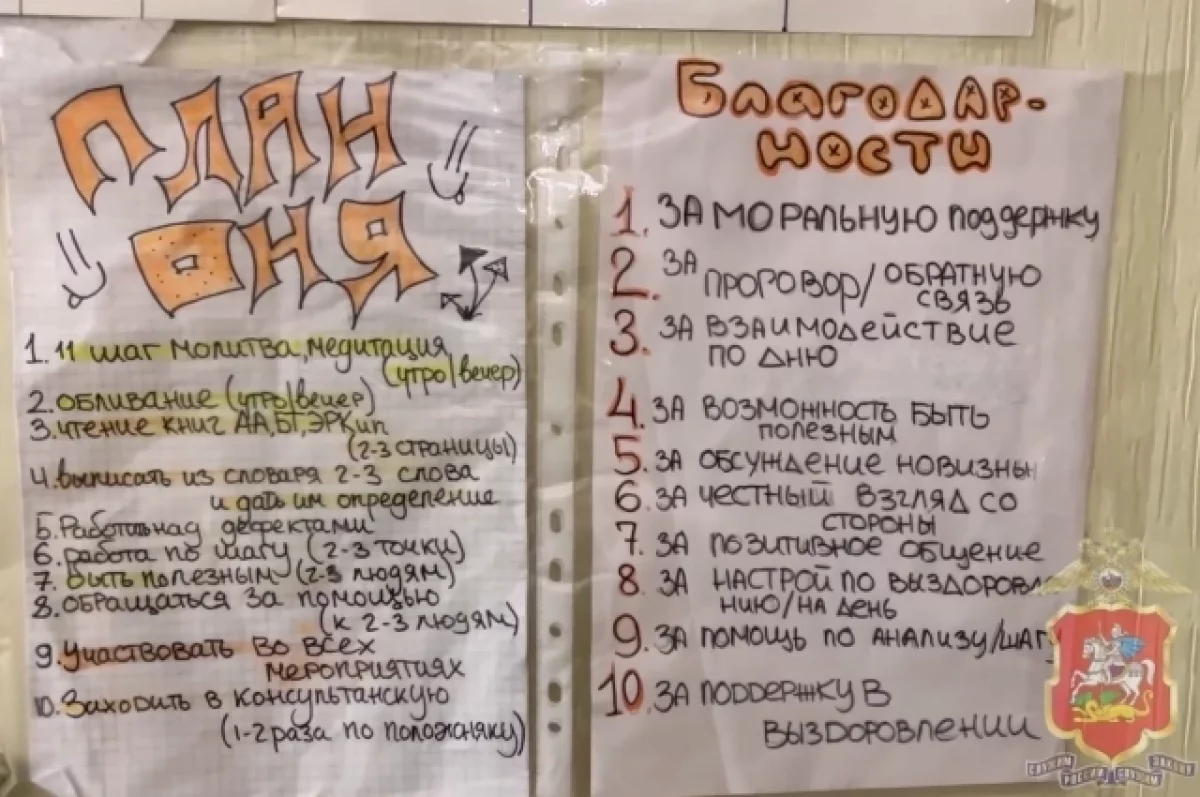 ПЛАН
ДНЯ
1. 11 шаг молитва, медитация
(утро/вечер)
2. обливание (утро/вечер)
3. чтение книг АА, БТ, ЭРК, ип
(2-3 страницы)
4. выписать из словаря 2-3 слова
и дать им определение
5. Работать над дефектами
6. работа по шагу (2-3 точки)
7. быть полезным (2-3 людям)
8. обращаться за помощью
(к 2-3 людям)
9. Участвовать во всех
мероприятиях
10. Заходить в консультанскую
(1-2 раза по положняку)
Благодар-
ности
1. ЗА МОРАЛЬНУЮ поддержку
2. ЗА ПРОГОВОР/ОБРАТНУЮ
СВЯЗЬ
3. ЗА ВЗАИМОДЕЙСТВИЕ
ПО ДНЮ
4. ЗА ВОЗМОННОСТЬ БЫТЬ
ПОЛЕЗНЫМ
5. ЗА ОБСУЖДЕНИЕ НОВИЗНЫ
6. ЗА ЧЕСТНЫЙ ВЗГЛЯД СО
СТОРОНЫ
7. ЗА ПОЗИТИВНОЕ ОБЩЕНИЕ
8. ЗА НАСТРОЙ ПО ВЫЗДОРОВЛ
НИЮ/НА ДЕНЬ
9. ЗА ПОМОЩЬ ПО АНАЛИЗУ/ШАГУ
10. ЗА ПОДДЕРЖКУ В
ВЫЗДОРОВЛЕНИИ
СЛУЖИМ РОССИИ СЛУЖИМ ЗАКОНУ